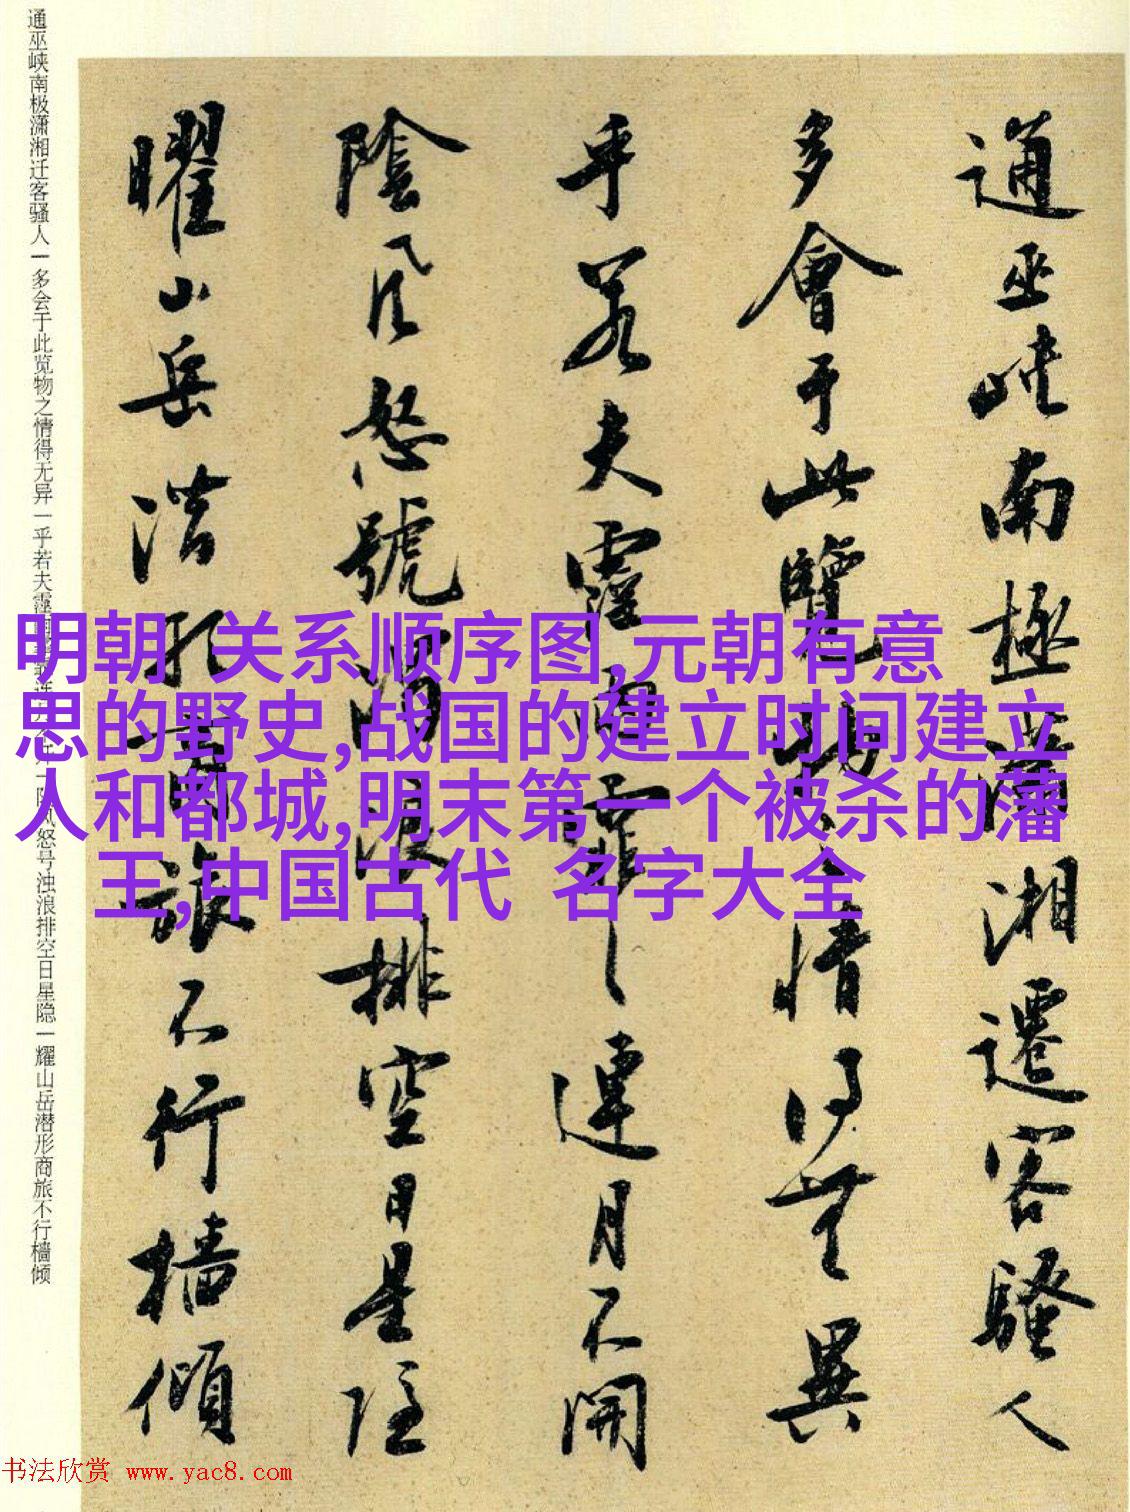 通巫峡南极潇湘迁客骚人一多会于此览物之情得无异一乎若夫霪
风怒号浊浪排空日星隐一耀山岳潜形商旅不行樯倾
通巫峡南極瀟湘遷客騷人
多會于此覽物之情得無異
乎若夫霪雨霏霏連月不開
陰風怒號濁浪排空日星隐
曜山岳潜形商旅不行檣傾
明朝 关系顺序图,元朝有意
思的野史,战国的建立时间建立
人和都城,明末第一个被杀的藩
王,中国古代 名字大全
书法欣赏 www.yac8.com